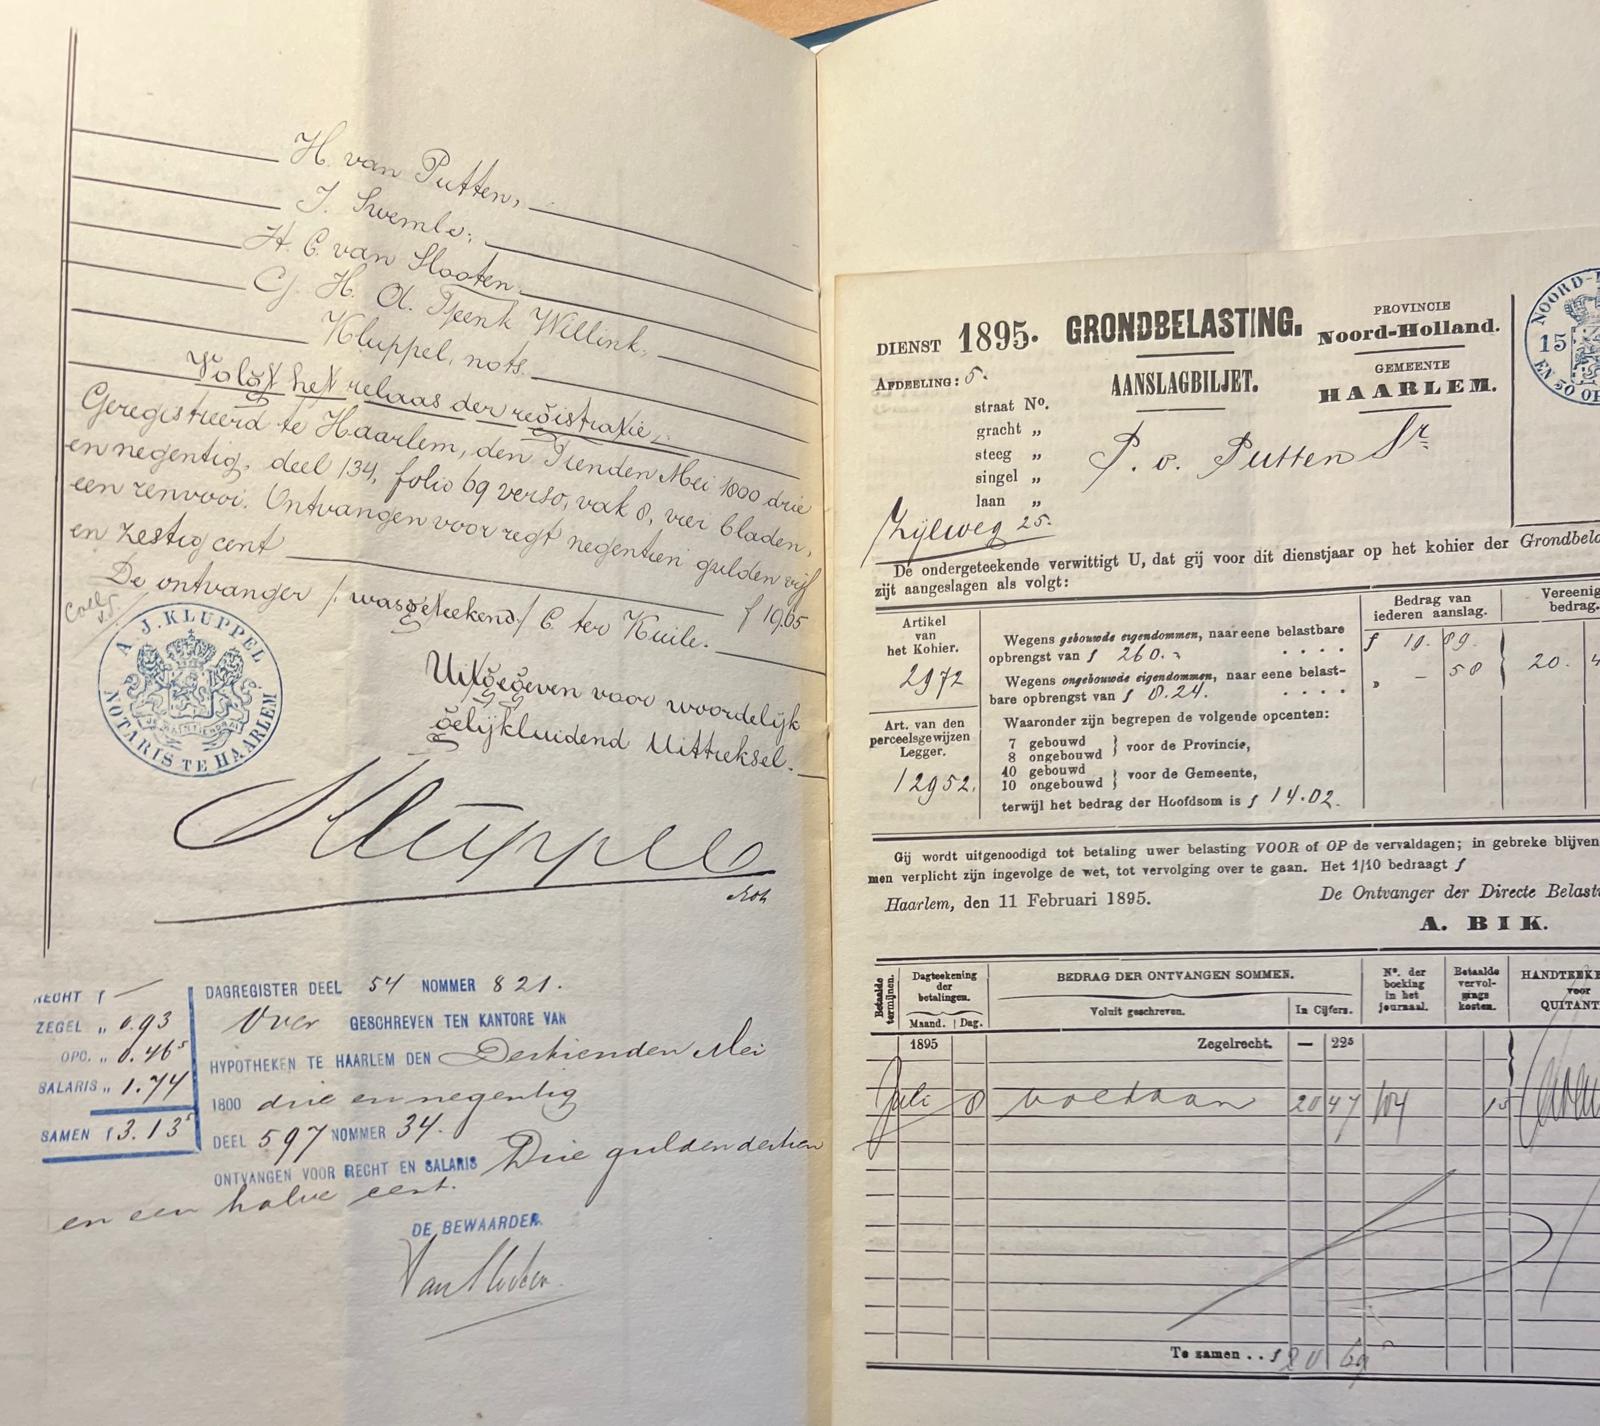 H. van Putten,
J. Swemle;
H. C. van Slooten.
Cj. H. A. Tjeenk Willink,
Kluppel, nots.
Volgt het relaas der registratie.
Geregistreerd te Haarlem, den Tienden Mei 1800 drie
en negentig, deel 134, folio 69 verso, vak 8, vier bladen,
een renvooi. Ontvangen voor regt negentien gulden vijf
en zestig cent f 19.65
De ontvanger /: was geteekend / C. ter Kuile.
Coll
A. J. KLUPPEL
NOTARIS TE HAARLEM
Uitgegeven voor woordelijk
gelijkluidend Uittreksel.
Kluppel
nots
RECHT f —
ZEGEL „ 0.93
OPC. „ 0.46⁵
SALARIS „ 1.74
SAMEN f 3.13⁵
DAGREGISTER DEEL 54 NOMMER 821.
Over GESCHREVEN TEN KANTORE VAN
HYPOTHEKEN TE HAARLEM DEN Dertienden Mei
1800 drie en negentig
DEEL 597 NOMMER 34.
ONTVANGEN VOOR RECHT EN SALARIS Drie gulden dertien
en een halve cent.
DE BEWAARDER.
Van Slooten
DIENST 1895. GRONDBELASTING.
AFDEELING: 5.
AANSLAGBILJET.
PROVINCIE
Noord-Holland.
GEMEENTE
HAARLEM.
NOORD-
15
EN 50 OP
straat Nº.
gracht „
steeg „
singel „
laan „
P. v. Putten Sr
Zijlweg 25.
De ondergeteekende verwittigt U, dat gij voor dit dienstjaar op het kohier der Grondbela
zijt aangeslagen als volgt:
Artikel
van
het Kohier.
2972
Art. van den
perceelsgewijzen
Legger.
12952.
Bedrag van
iederen aanslag.
Vereenig
bedrag.
Wegens gebouwde eigendommen, naar eene belastbare
opbrengst van f 260.- . . . . f 19. 89.
Wegens ongebouwde eigendommen, naar eene belast-
bare opbrengst van f 8.24. . . . . „ — 58 20. 4
Waaronder zijn begrepen de volgende opcenten:
7 gebouwd
8 ongebouwd } voor de Provincie,
40 gebouwd
10 ongebouwd } voor de Gemeente,
terwijl het bedrag der Hoofdsom is f 14.02.
Gij wordt uitgenoodigd tot betaling uwer belasting VOOR of OP de vervaldagen; in gebreke blijven
men verplicht zijn ingevolge de wet, tot vervolging over te gaan. Het 1/10 bedraagt f
Haarlem, den 11 Februari 1895.
De Ontvanger der Directe Belast
A. BIK.
Betaalde termijnen.
Dagteekening
der
betalingen.
Maand. Dag.
BEDRAG DER ONTVANGEN SOMMEN.
Voluit geschreven. In Cijfers.
Nº. der
boeking
in het
journaal.
Betaalde
vervol-
gings
kosten.
HANDTEEKE
voor
QUITANT
1895 Zegelrecht. — 22⁵
Juli 8 voldaan 20 47 104 15
Te zamen . . f 20 69⁵